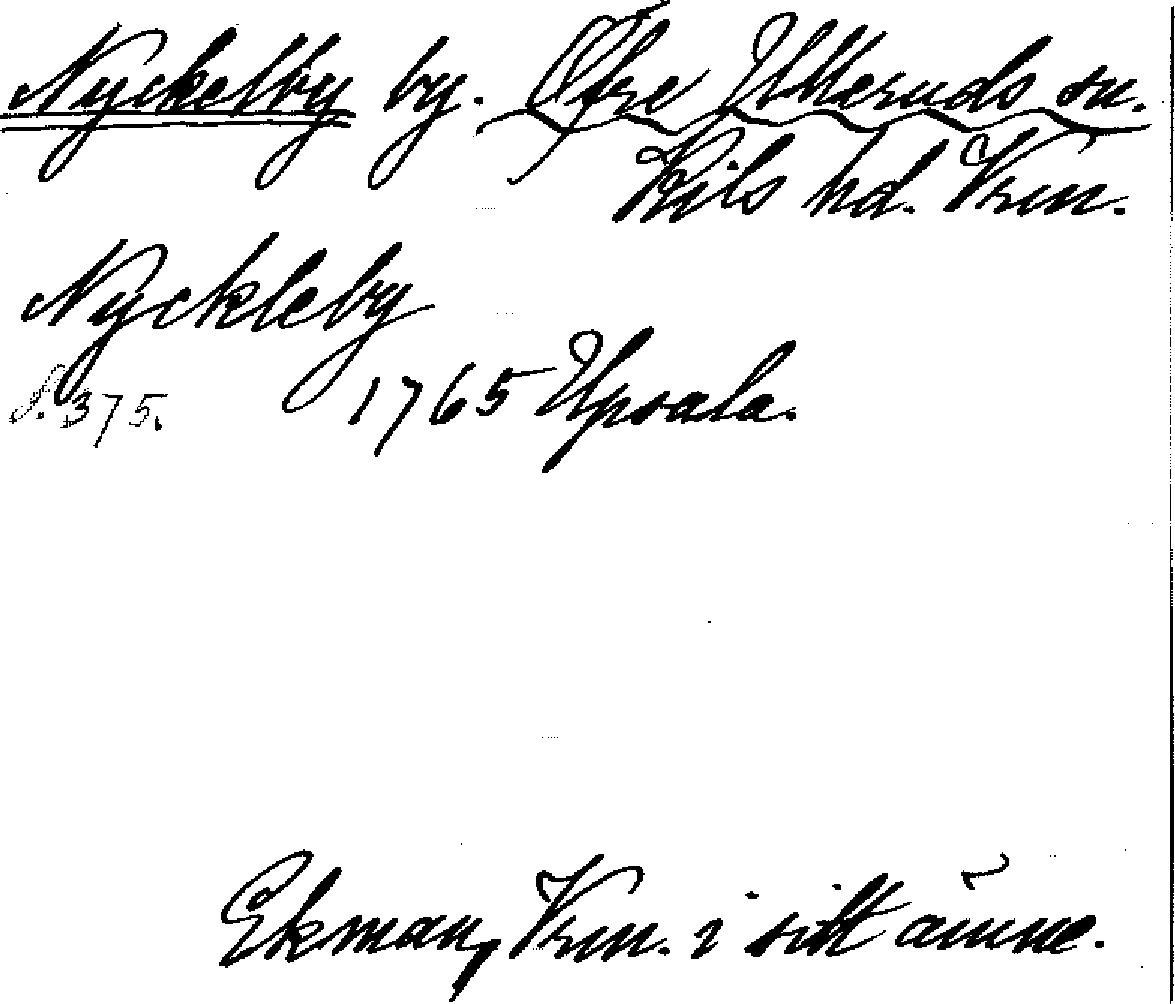 Nyckelby by. Öfre Ulleruds sn.
Kils hd. Vrm.
Nyckleby
S. 375. 1765 Upsala.
Ekman, Vrm. i sitt ämne.